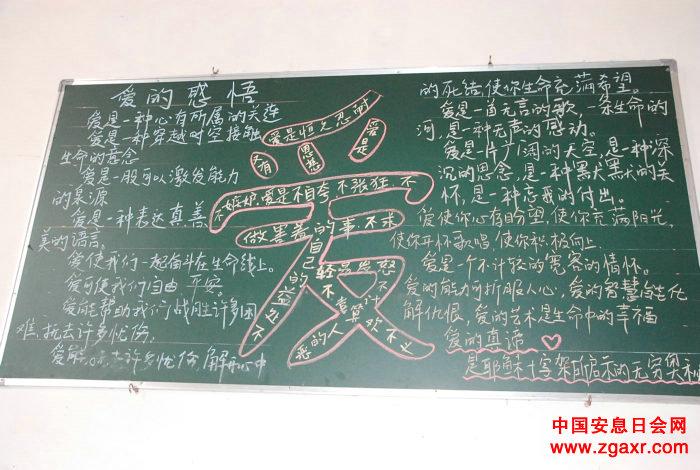 爱的感悟
爱是一种心有所属的关连
爱是一种穿越时空接触
生命的意念
爱是一股可以激发能力
的泉源
爱是一种表达真善
美的语言。
爱使我们一起奋斗在生命线上。
爱可使我们自由 平安。
爱能帮助我们战胜许多困
难、抚去许多忧伤。
爱能 去许多忧伤,解开心中
的死结,使你生命充满希望。
爱是一首无言的歌,一条生命的
河,是一种无声的感动。
爱是片广阔的天空,是一种深
沉的思念,是一种默默的关
怀,是一种忘我的付出。
爱使你心有盼望,使你充满阳光,
使你开怀歌唱,使你积极向上
爱是一个不计较的宽容的情怀。
爱的能力可折服人心,爱的智慧能化
解仇恨,爱的艺术是生命中的幸福
爱的真谛
是耶稣十字架所启示的无穷奥秘
爱是恒久忍耐
又有
恩慈
爱是
不嫉妒,爱是不自夸 不张狂 不
做害羞的事.不求
自己的益处 不
轻易发怒 不
计算人的恶
不
中国安息日会网
www.zgaxr.com